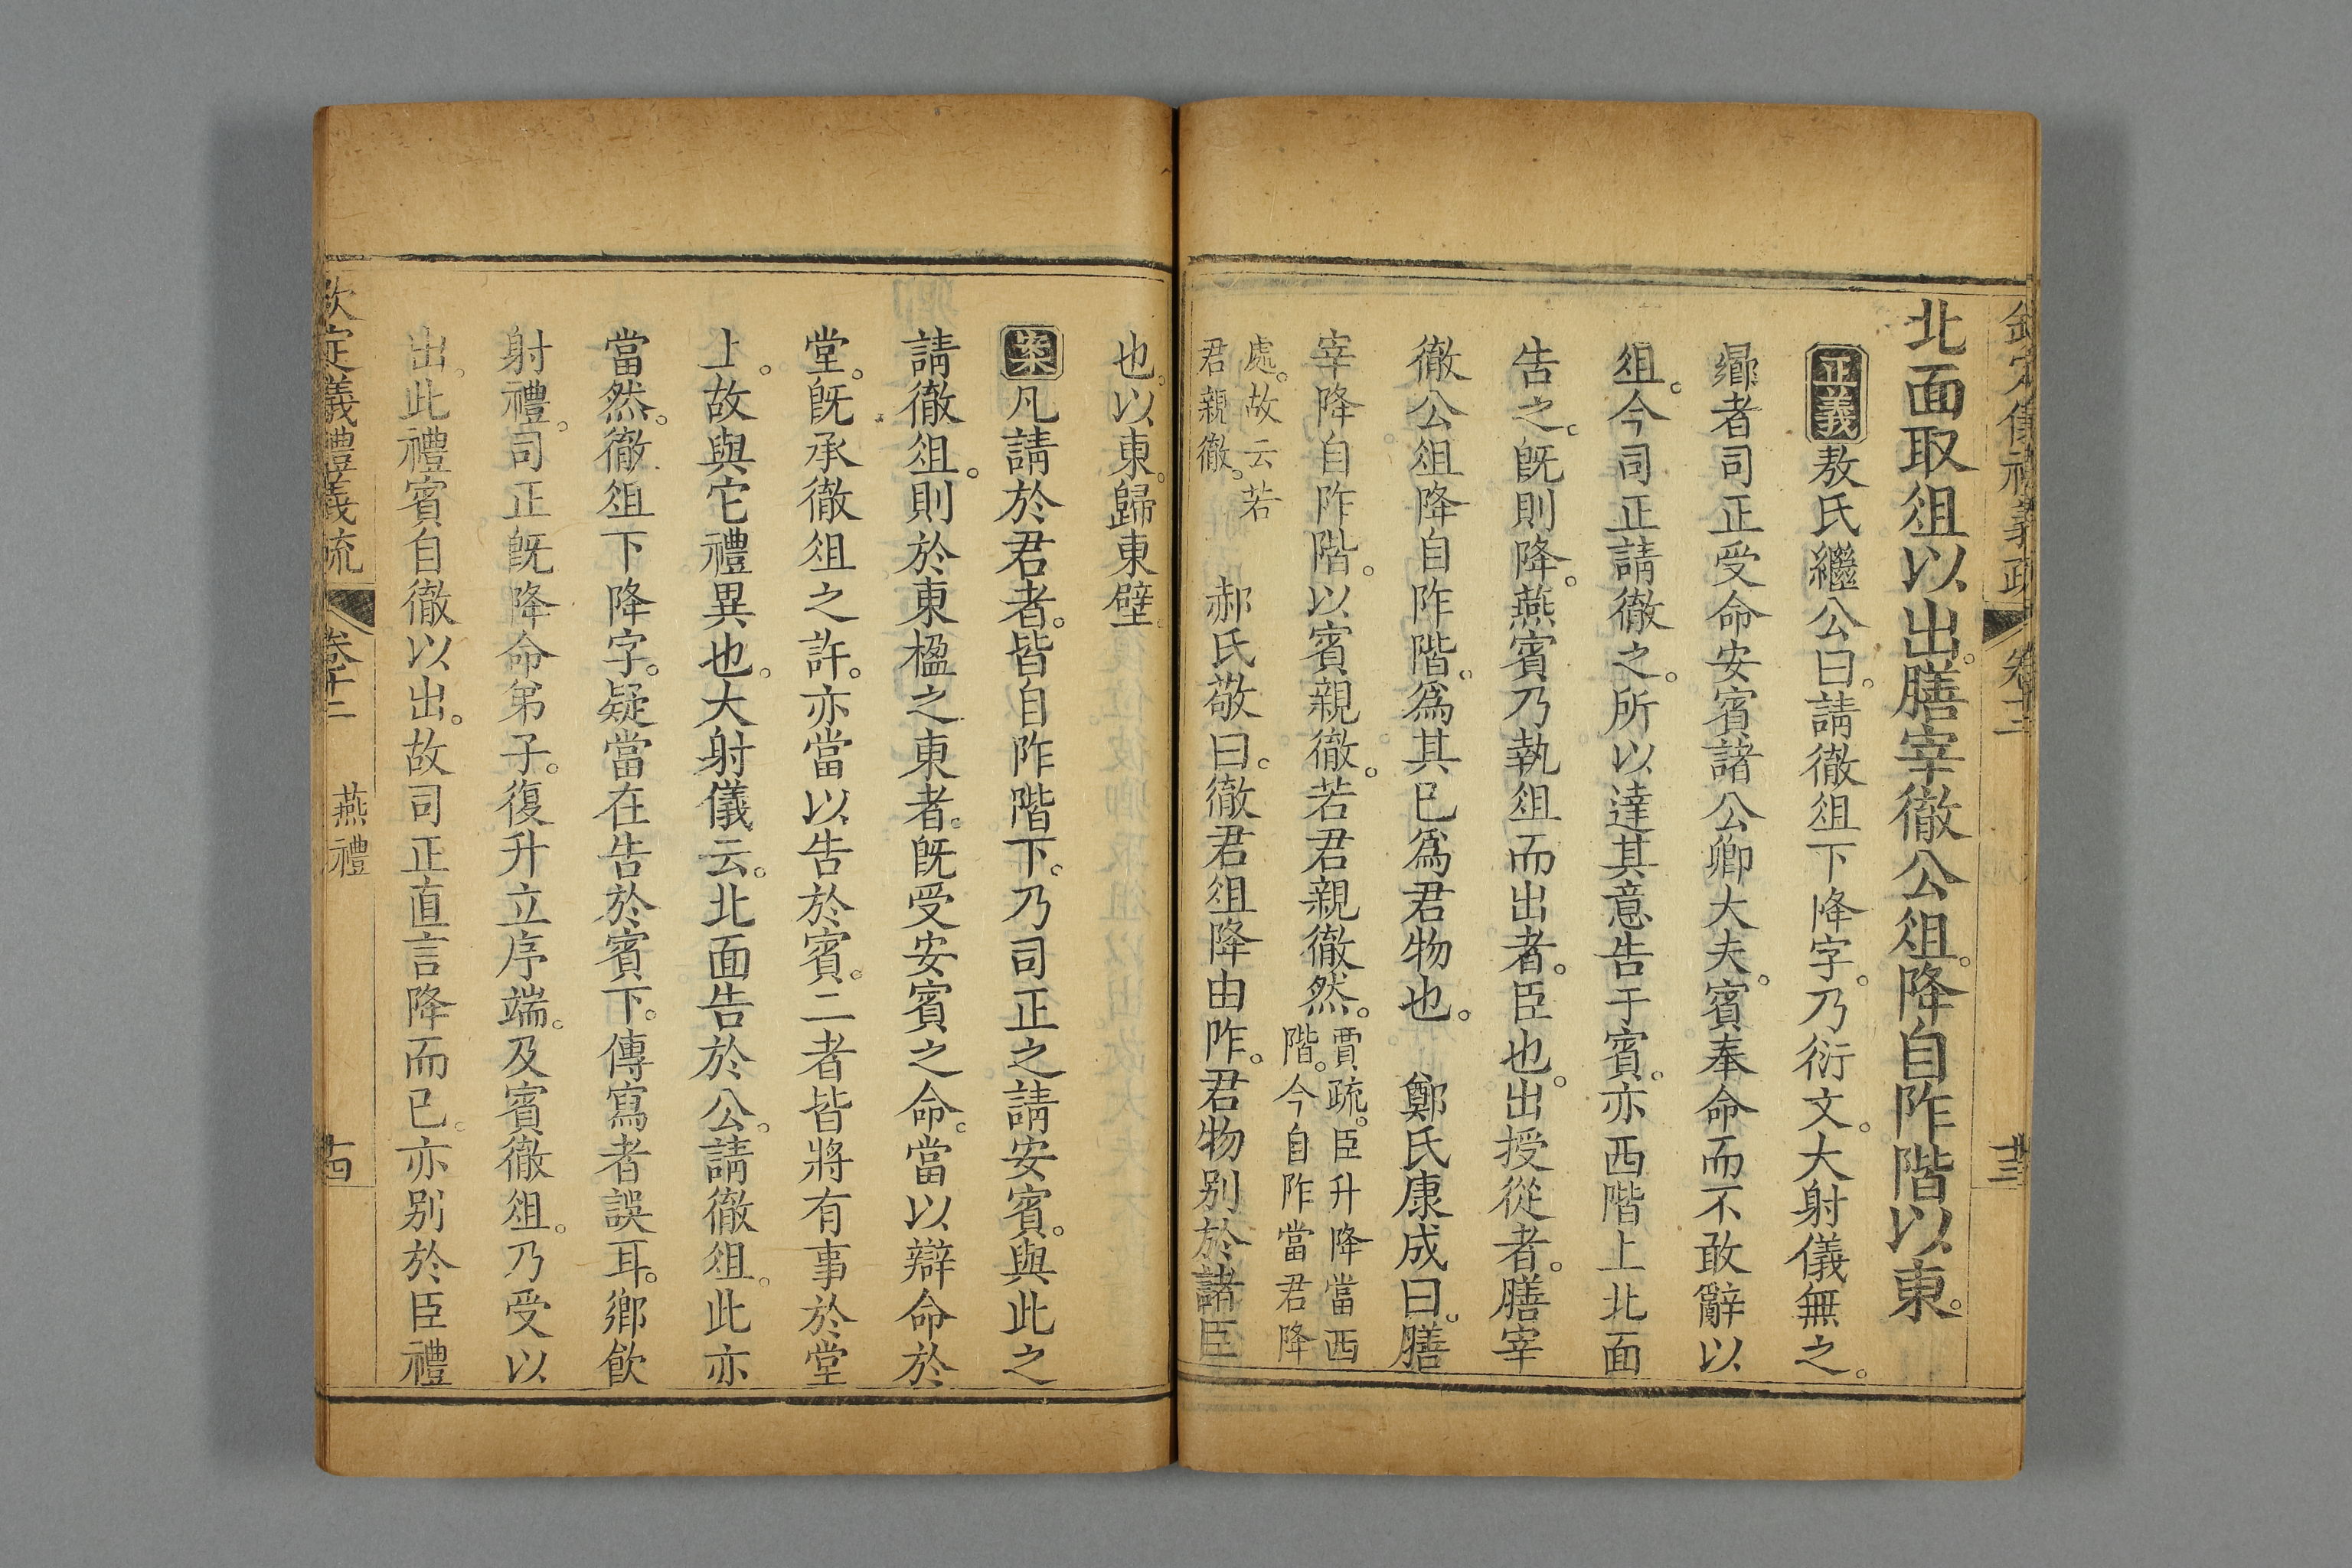 北面取俎以出。膳宰徹公俎。降自阼階以東。
正義敖氏繼公曰。請徹俎下降字。乃衍文。大射儀無之。
曏者司正受命安賓諸公卿大夫。賓奉命而不敢辭以
俎。今司正請徹之。所以達其意告于賓。亦西階上北面
告之。旣則降。燕賓乃執俎而出者。臣也。出授從者。膳宰
徹公俎降自阼階。爲其已爲君物也。 鄭氏康成曰。膳
宰降自阼階。以賓親徹。若君親徹然。賈疏。臣升降當西
階。今自阼當君降
處。故云若
君親徹。 郝氏敬曰。徹君俎降由阼。君物别於諸臣
也。以東。歸東壁。
案凡請於君者。皆自阼階下。乃司正之請安賓。與此之
請徹俎。則於東楹之東者。旣受安賓之命。當以辯命於
堂。旣承徹俎之許。亦當以告於賓。二者皆將有事於堂
上。故與它禮異也。大射儀云。北面告於公。請徹俎。此亦
當然。徹俎下降字。疑當在告於賓下。傳寫者誤耳。鄉飮
射禮。司正旣降命弟子。復升立序端。及賓徹俎。乃受以
出。此禮賓自徹以出。故司正直言降而已。亦别於臣禮
欽定儀禮義疏 卷十二 燕禮 十四